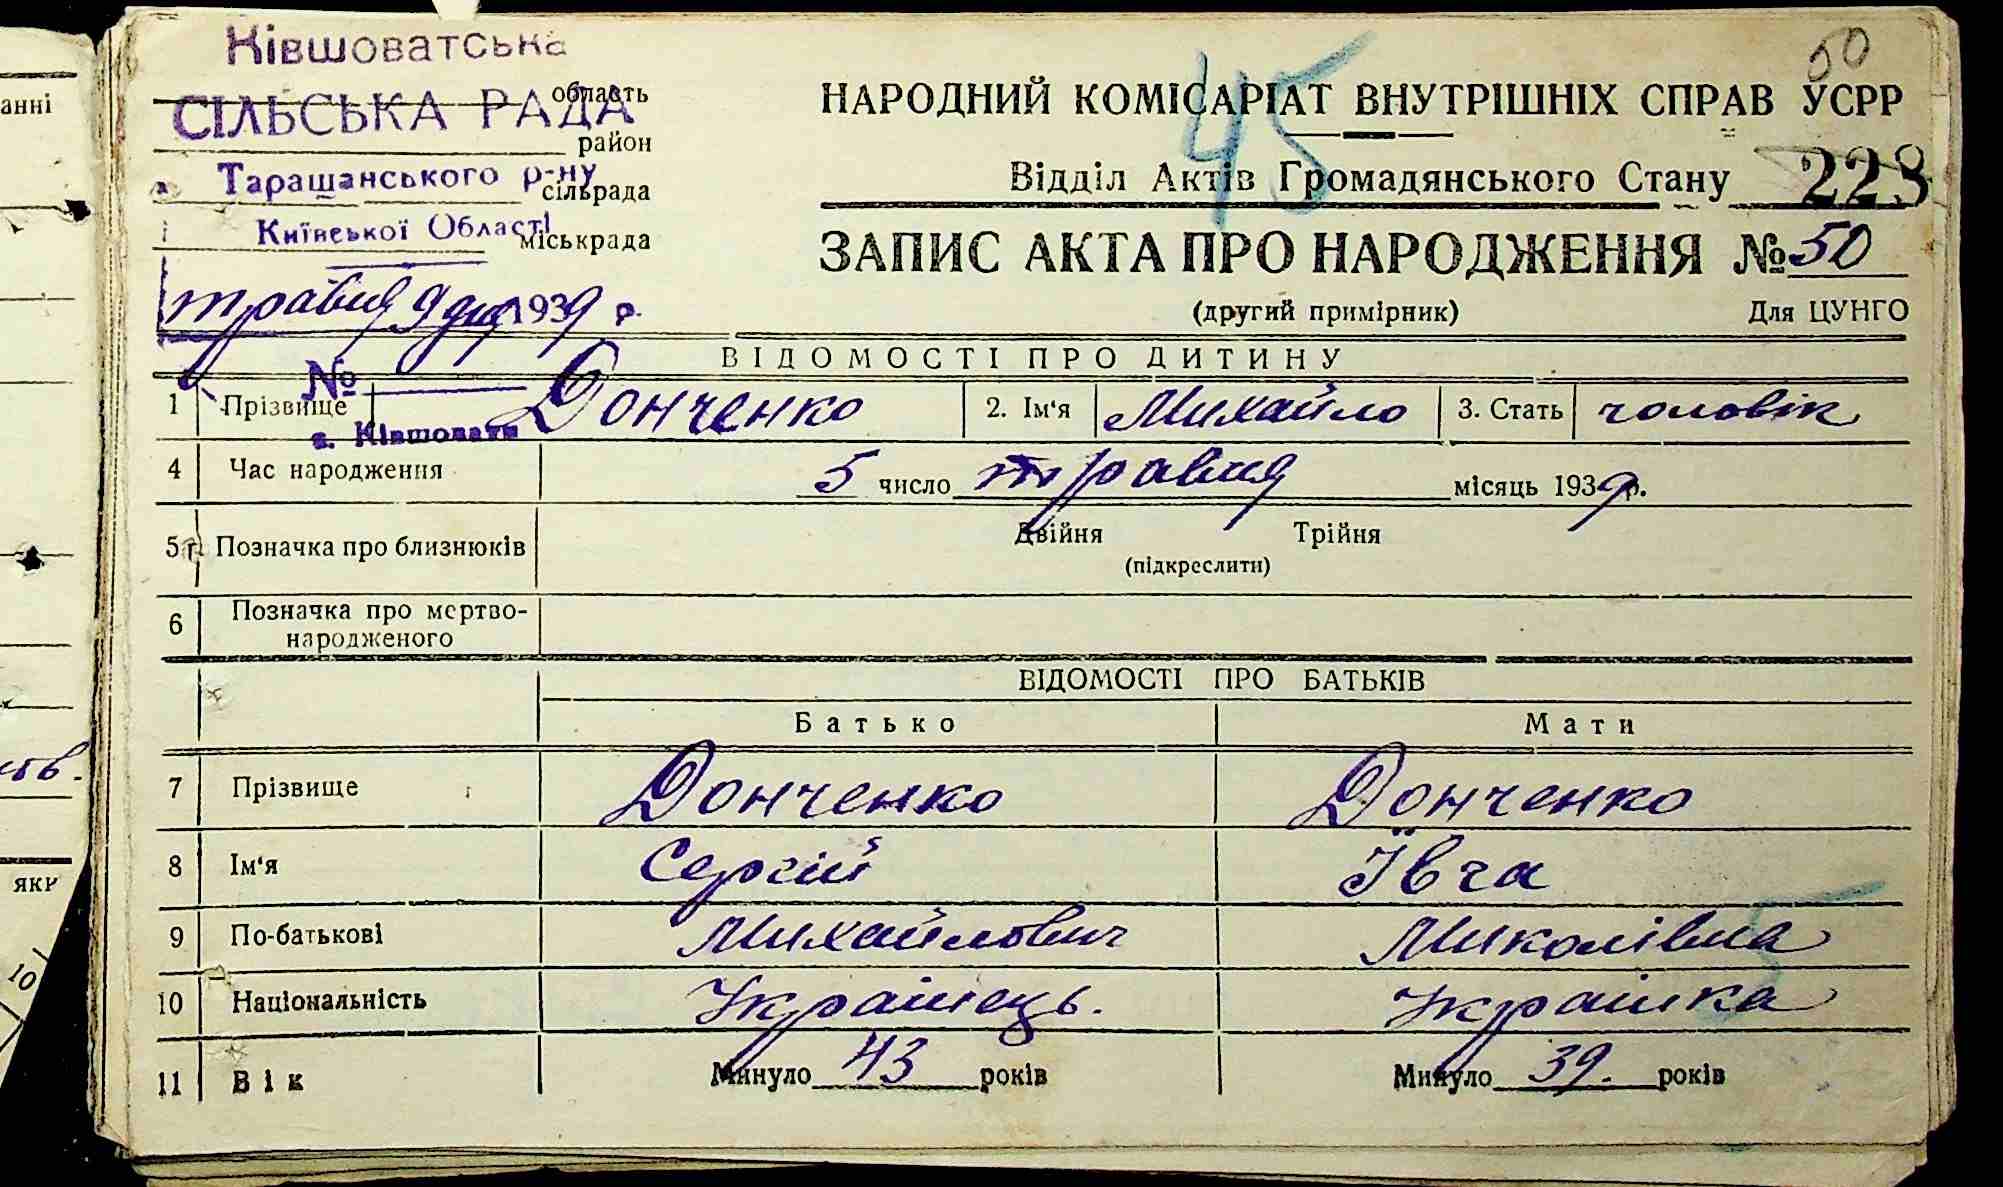 Ківшоватська
50
45
область
СІЛЬСЬКА РАДА
НАРОДНИЙ КОМІСАРІАТ ВНУТРІШНІХ СПРАВ УСРР
район
Таращанського р-ну
сільрада
Відділ Актів Громадянського Стану 223
Київської Області
міськрада
ЗАПИС АКТА ПРО НАРОДЖЕННЯ № 50
травня 9 дня 1939 р.
(другий примірник) Для ЦУНГО
ВІДОМОСТІ ПРО ДИТИНУ
№
1 Прізвище Донченко 2. Ім'я Михайло 3. Стать чоловік
с. Ківшовата
4 Час народження 5 число травня місяць 1939 р.
5 Позначка про близнюків Двійня Трійня
(підкреслити)
6 Позначка про мертво-
народженого
ВІДОМОСТІ ПРО БАТЬКІВ
Батько Мати
7 Прізвище Донченко Донченко
8 Ім'я Сергій Ївга
9 По-батькові Михайлович Миколівна
10 Національність Українець. Українка
11 Вік Минуло 43 років Минуло 39. років
анні
яки
10